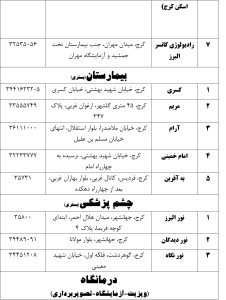 اسکن کرج)
۷ رادیولوژی کانسر البرز کرج، میدان مهران، جنب بیمارستان تخت جمشید و آزمایشگاه مهران ۳۳۵۳۵۰۵۶
بیمارستان(بستری)
۱ کسری کرج، خیابان شهید بهشتی، خیابان کسری ۳۴۴۱۶۲۳۲۰۵
۲ مریم کرج، ۴۵ متری گلشهر، ارغوان غربی، پلاک ۲۴۷ ۳۳۵۵۵۷۴۹
۳ آرام کرج، خیابان ملاصدرا، بلوار استقلال، انتهای خیابان مسلم بن عقیل ۲۶۱۱۱۰۰۰
۴ امام خمینی کرج، خیابان شهید بهشتی، نرسیده به چهارراه امام ۳۲۲۳۳۷۷۷
۵ به آفرین کرج، فردیس، کانال غربی، بلوار بهاران غربی، بعد از چهارراه دهکده ۳۵۷۳۱
چشم پزشکی(بستری)
۱ نور البرز کرج، جهانشهر، میدان هلال احمر، ابتدای کوچه فریما، پلاک ۴ ۳۵۸۰۰
۲ نور دیدگان کرج، جهانشهر، بلوار مولانا ۳۴۴۸۹۰۹۱
۳ نور نگاه کرج، گوهردشت، فلکه اول، خیابان شهید معینی ۳۴۴۵۱۲۰۸
درمانگاه
(ویزیت-آزمایشگاه-تصویربرداری)